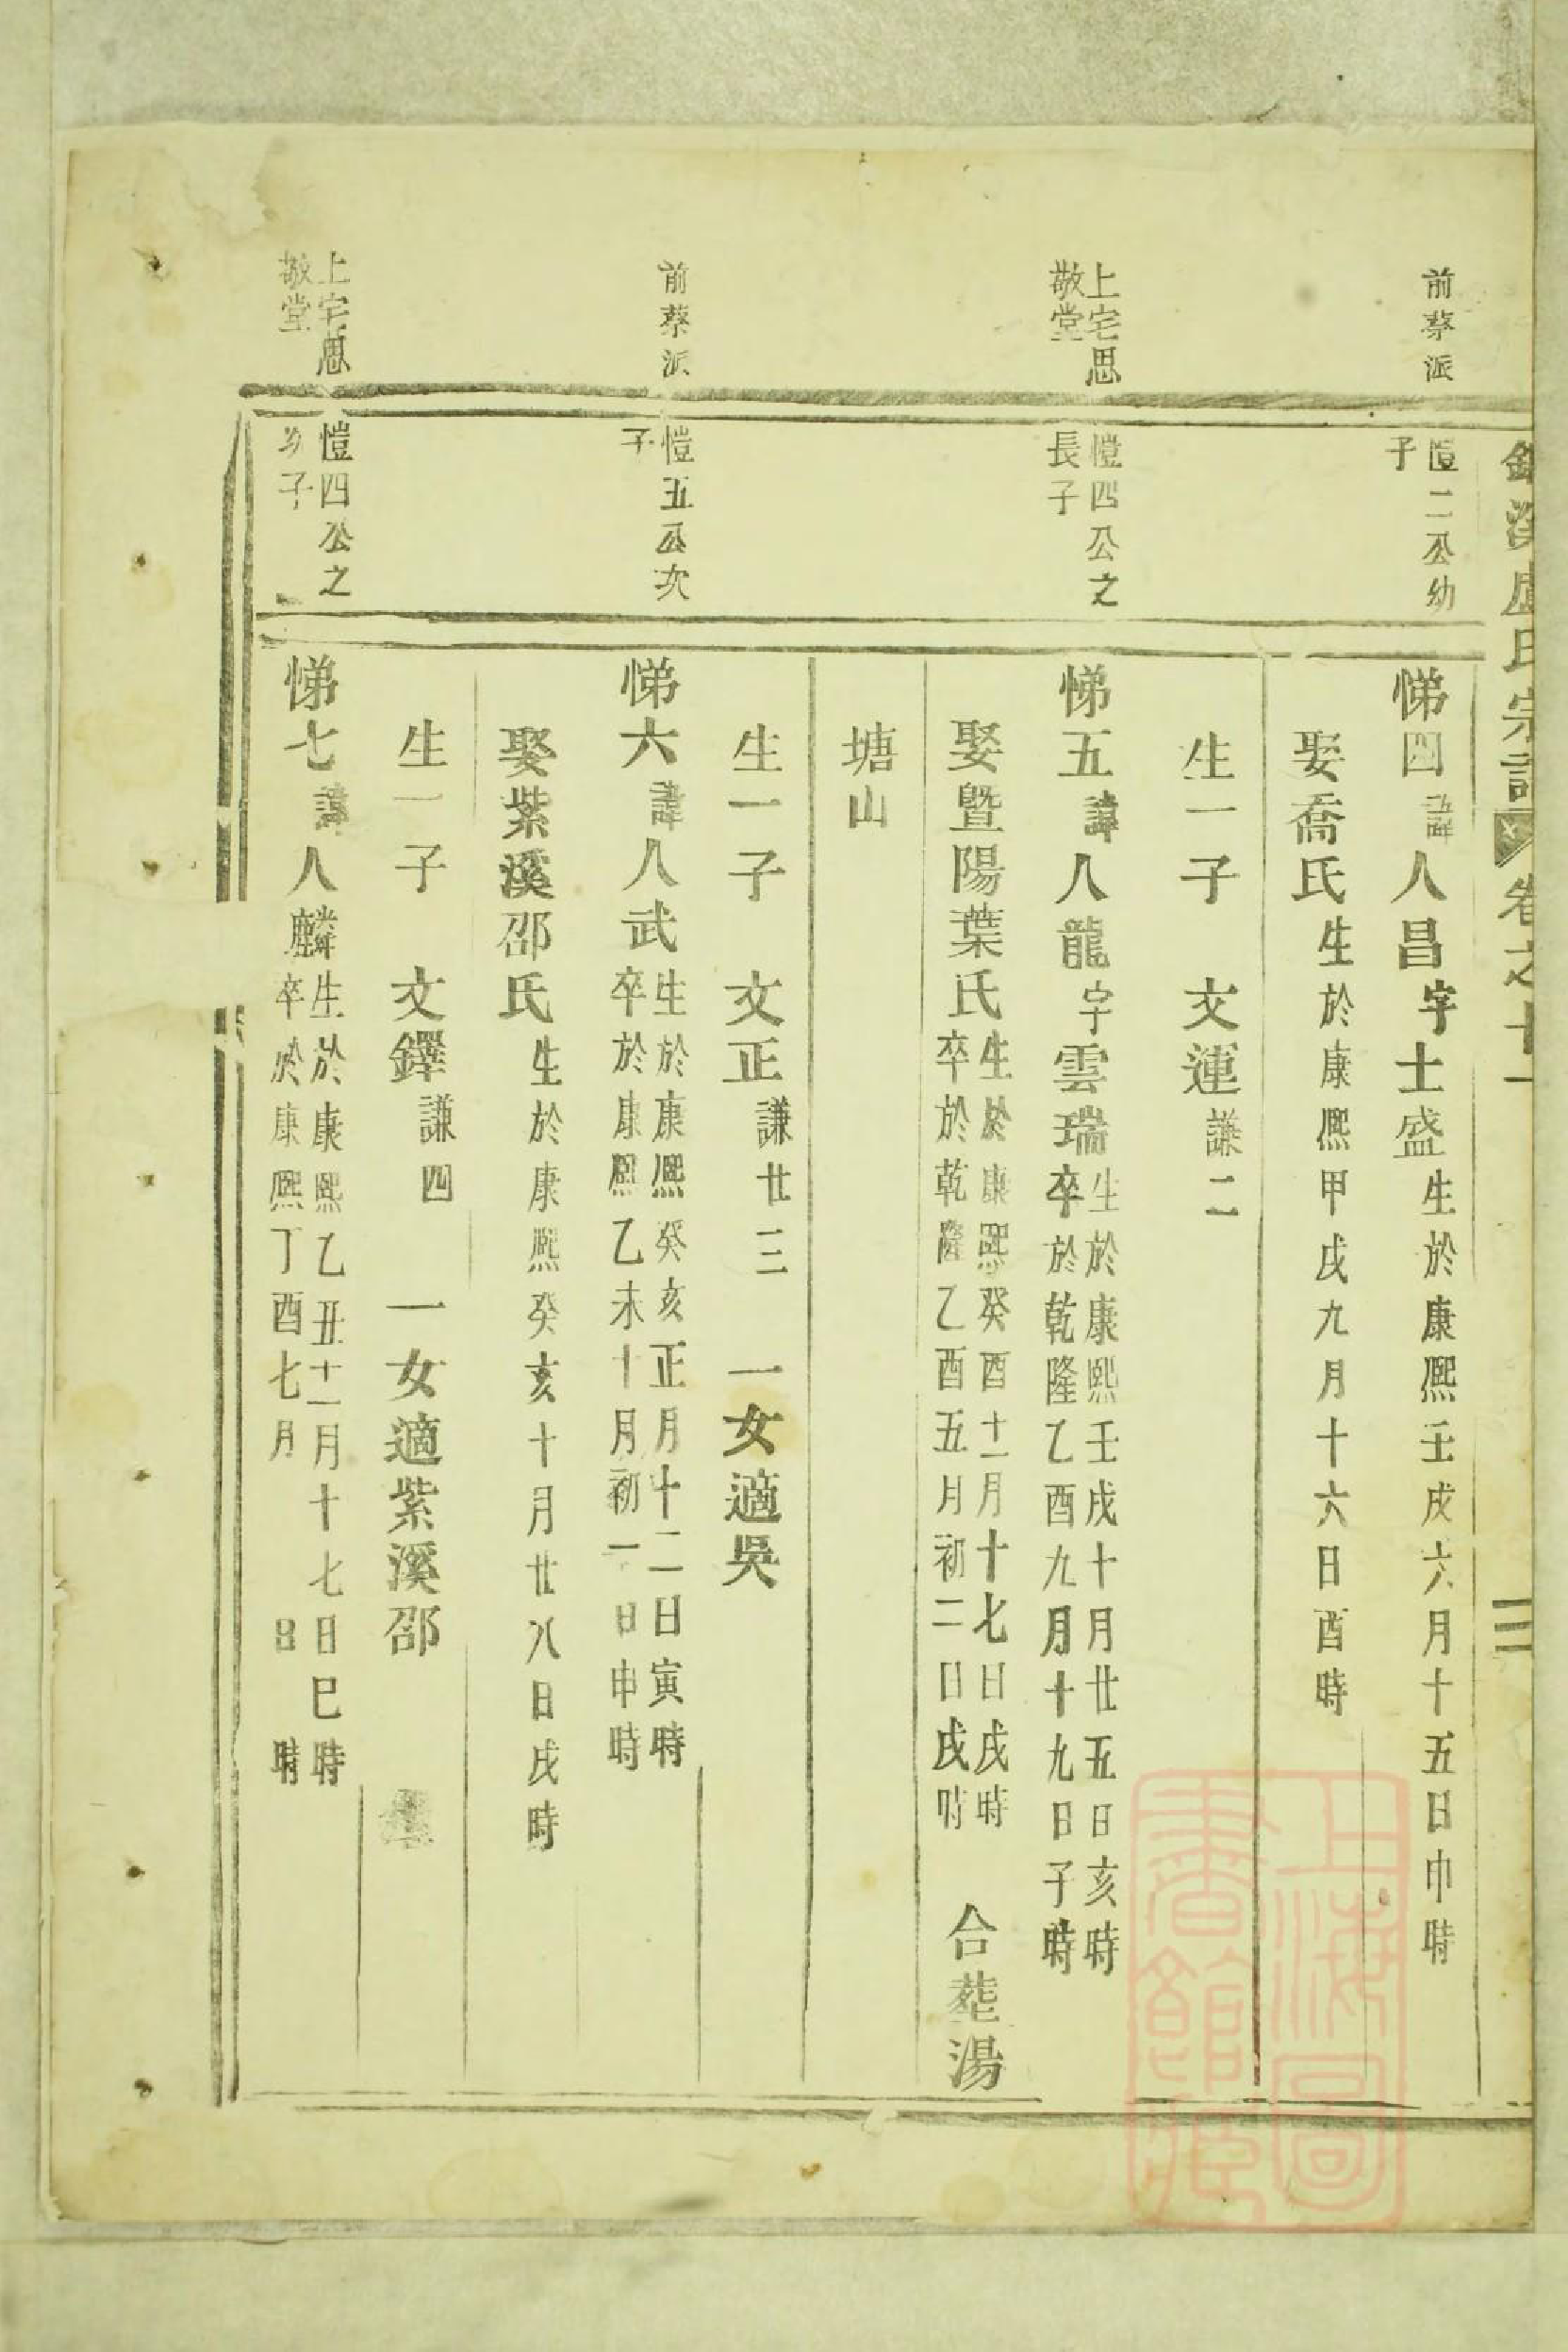 溪盧氏宗譜 卷之十一 三
前蔡派
愷二公幼
子
悌四諱人昌字士盛生於康熙壬戌六月十五日巾時
娶喬氏生於康熙甲戌九月十六日酉時
生一子 文運謙二
上宅思
敬堂
愷四公之
長子
悌五諱人龍字雲瑞生於康熙壬戌十月廿五日亥時
卒於乾隆乙酉九月十九日子時
娶曁陽葉氏生於康熙癸酉十一月十七日戌時
卒於乾隆乙酉五月初二日戌時
合塟湯
塘山
生一子 文正謙廿三 一女適吳
前蔡派
愷五公次
子
悌六諱人武生於康熙癸亥正月十二日寅時
卒於康熙乙未十月初一日申時
娶紫溪邵氏生於康熙癸亥十月廿八日戌時
生一子 文鐸謙四 一女適紫溪邵
上宅思
敬堂
愷四公之
次子
悌七諱人麟生於康熙乙丑十一月十七日巳時
卒於康熙丁酉七月 日 時
上海圖
書館藏